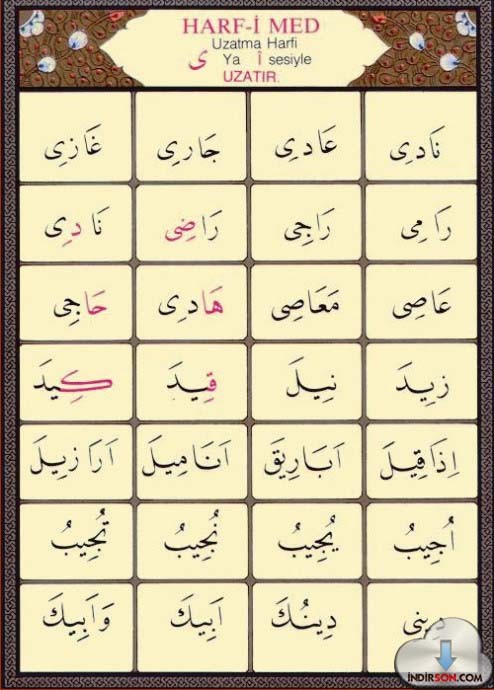 HARF-İ MED
Uzatma Harfi
ى Ya î sesiyle
UZATIR.
نَادِى عَادِى جَارِى غَازِى
رَامِى رَاجِى رَاضِى نَادِى
عَاصِى مَعَاصِى هَادِى حَاجِى
زِيدَ نِيلَ قِيدَ كِيدَ
اِذَاقِيلَ اَبَارِيقَ اَنَامِيلَ اَرَازِيلَ
اُجِيبُ يُجِيبُ نُجِيبُ تُجِيبُ
دِينِى دِينُكَ اَبِيكَ وَاَبِيكَ
iNDiRSON.COM